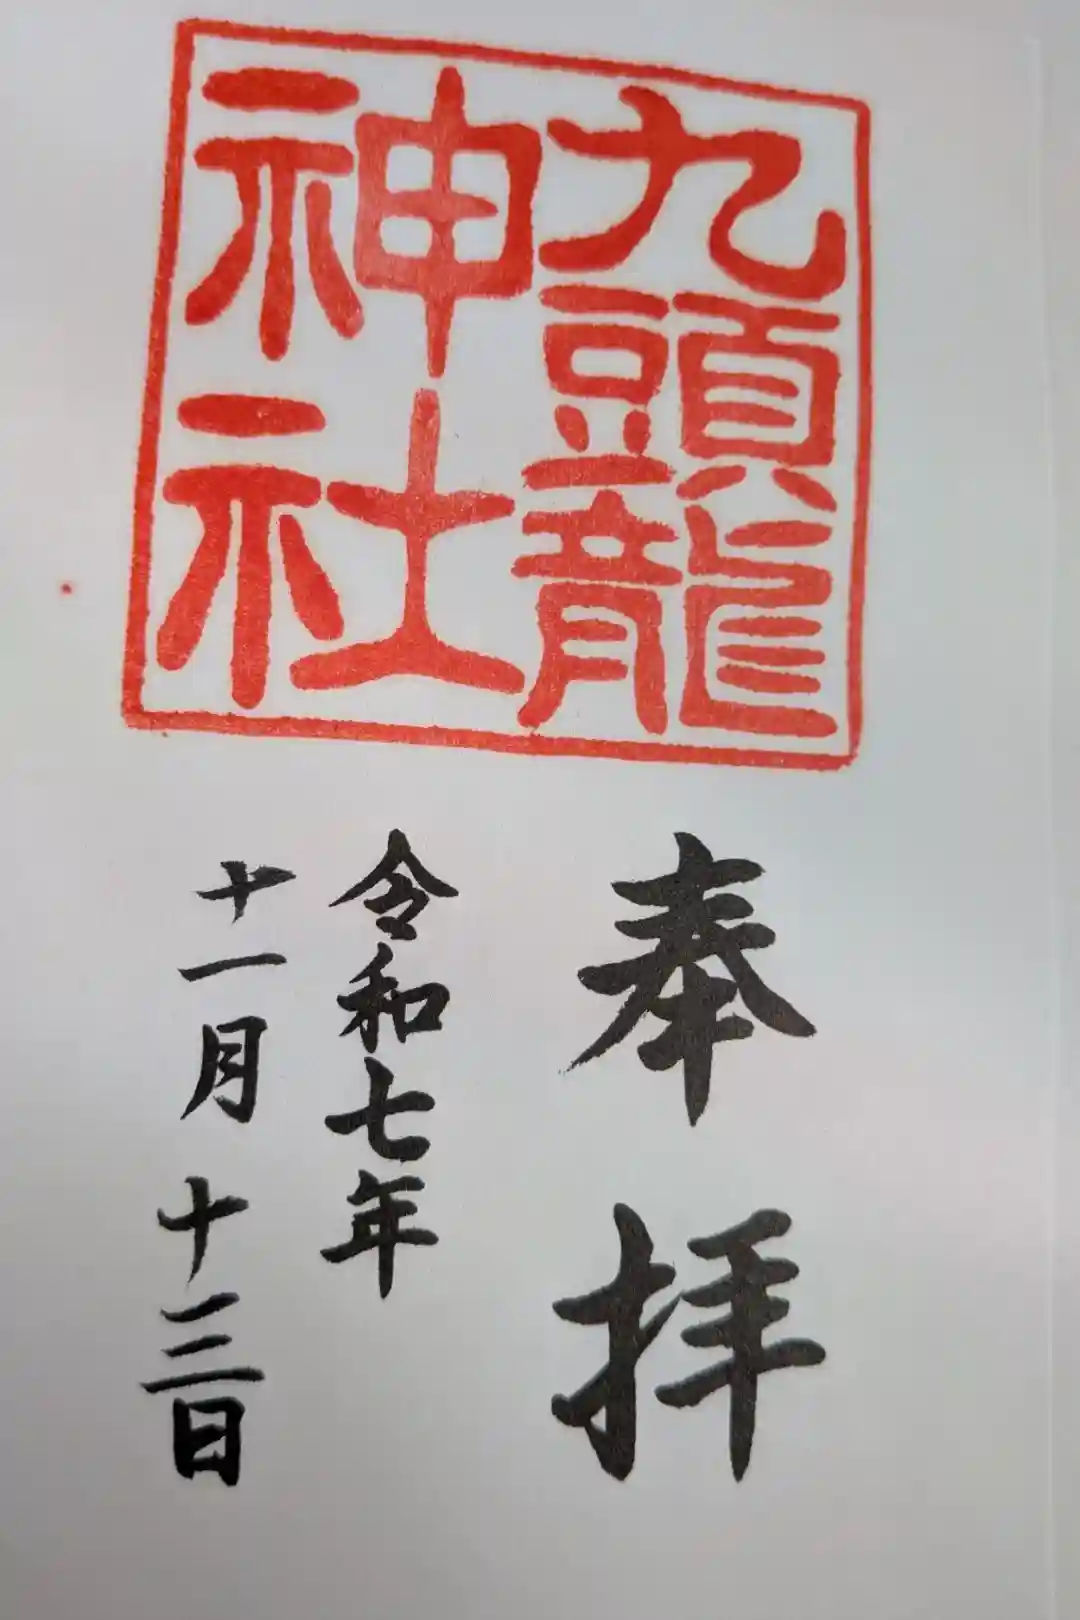 九頭龍
神社
奉拝
令和七年
十一月十三日